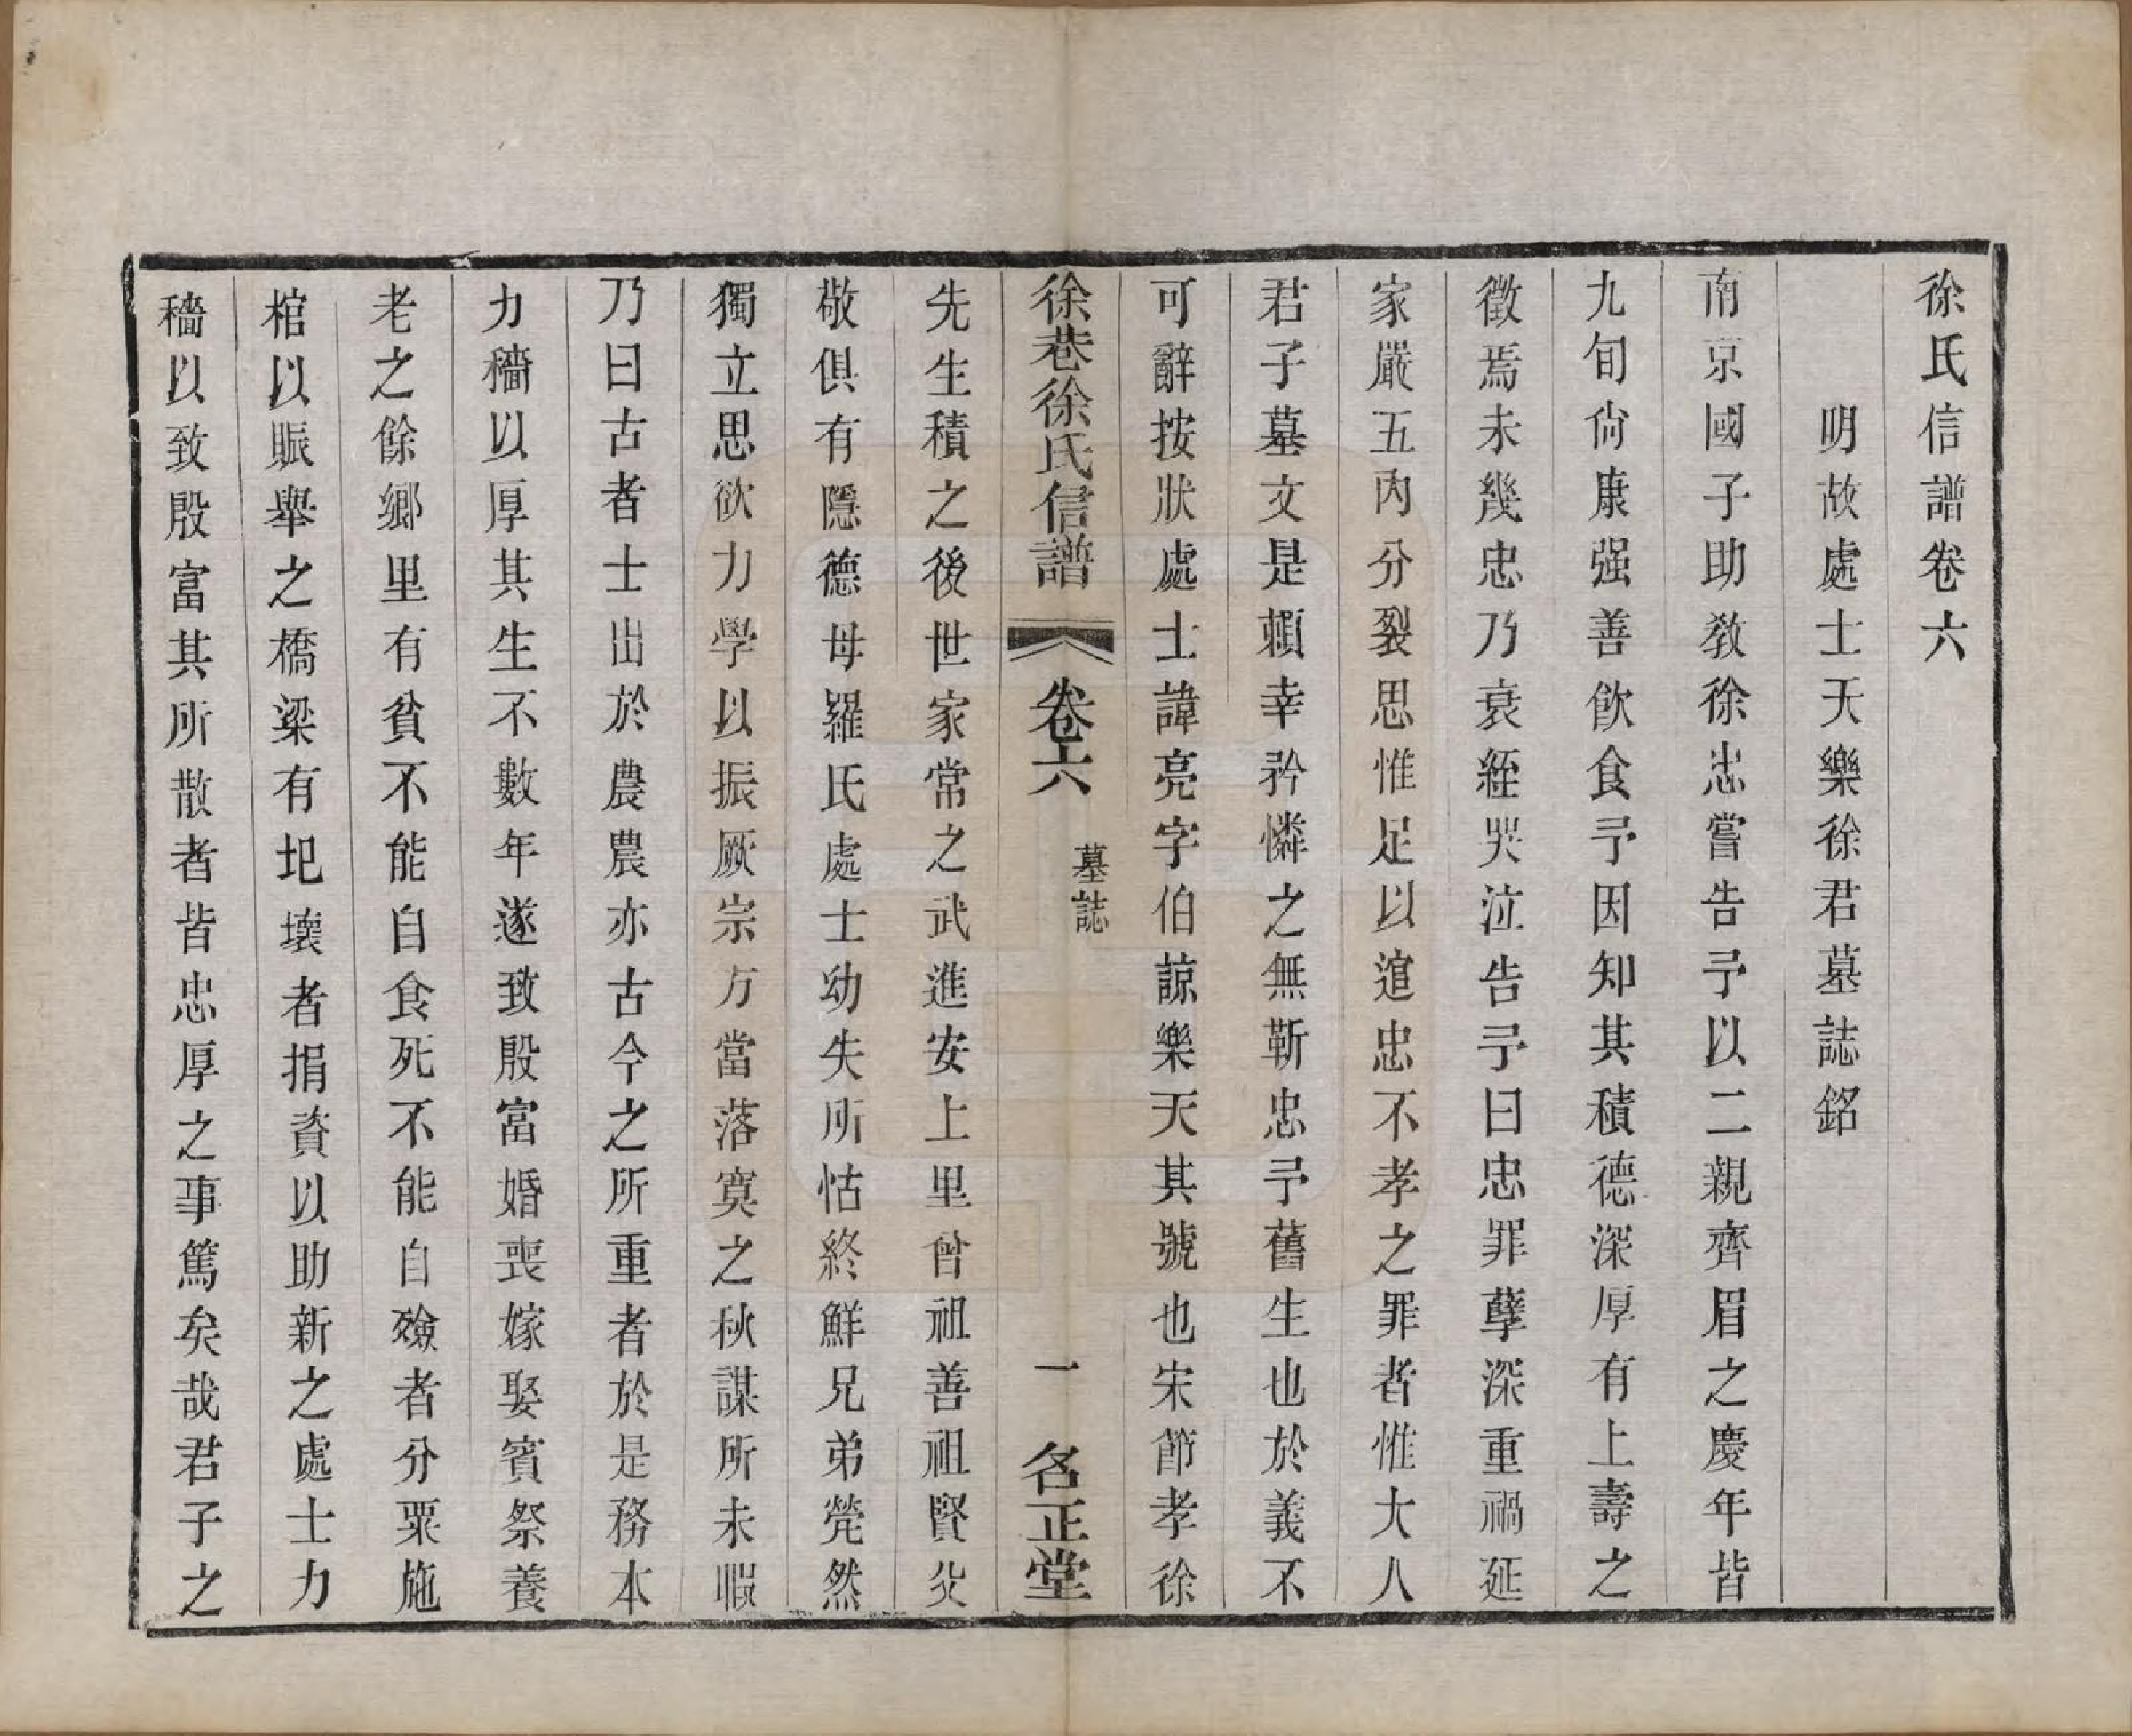 徐氏信譜卷六
明故處士天樂徐君墓誌銘
南京國子助教徐忠嘗告予以二親齊眉之慶年皆
九旬尙康强善飮食予因知其積德深厚有上壽之
徵焉未幾忠乃衰絰哭泣告予曰忠罪孽深重禍延
家嚴五內分裂思惟足以逭忠不孝之罪者惟大人
君子墓文是賴幸矜憐之無靳忠予舊生也於義不
可辭按狀處士諱亮字伯諒樂天其號也宋節孝徐
徐巷徐氏信譜 卷六 墓誌 一 名正堂
先生積之後世家常之武進安上里曾祖善祖賢父
敬俱有隱德母羅氏處士幼失所怙終鮮兄弟煢然
獨立思欲力學以振厥宗方當落寞之秋謀所未暇
乃曰古者士出於農農亦古今之所重者於是務本
力穡以厚其生不數年遂致殷富婚喪嫁娶賓祭養
老之餘鄉里有貧不能自食死不能自殮者分粟施
棺以賑舉之橋梁有圯壞者捐資以助新之處士力
穡以致殷富其所散者皆忠厚之事篤矣哉君子之